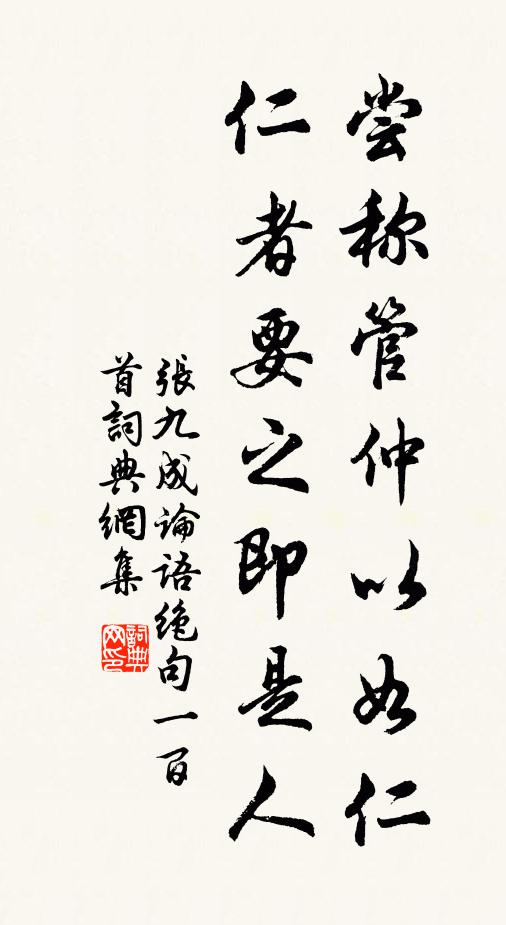 尝称管仲以如仁
仁者要之即是人
張九成論语绝句一百
首詞典網集
詞典
网印